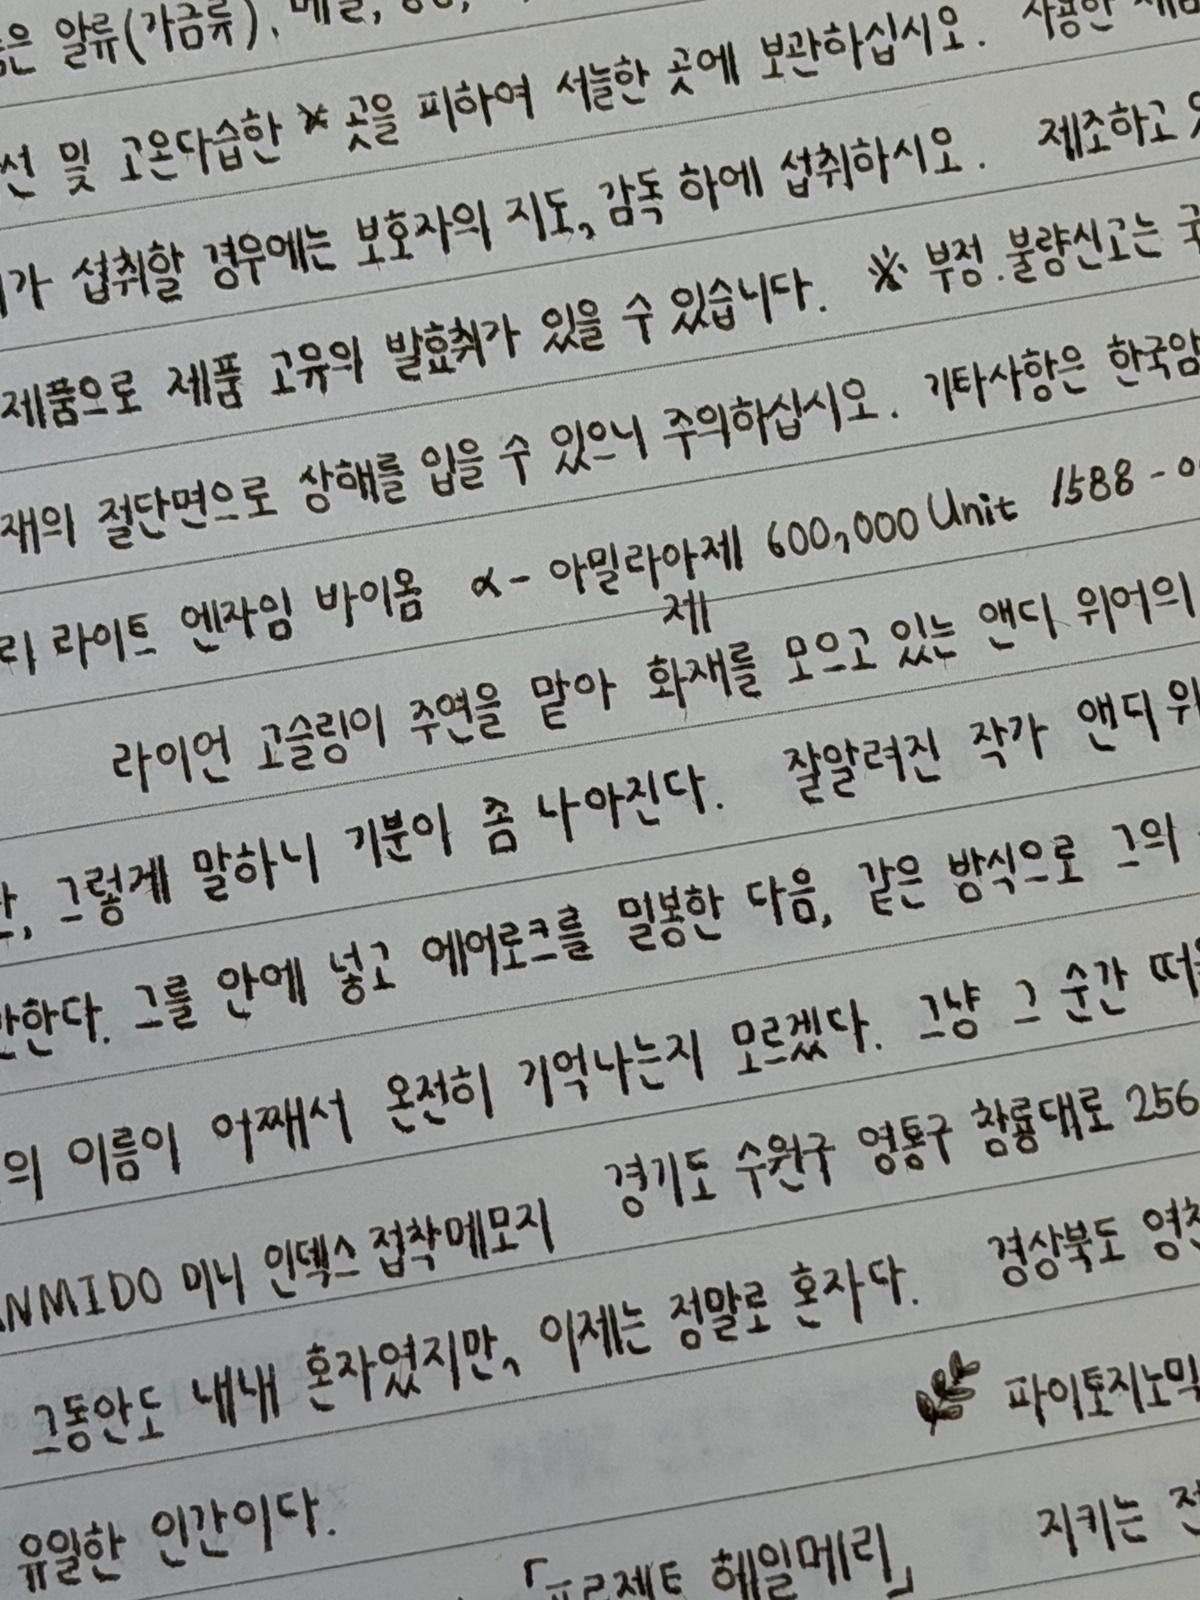 알류(가금류), 메밀,
및 고온다습한 곳을 피하여 서늘한 곳에 보관하십시오. 사용한
가 섭취할 경우에는 보호자의 지도, 감독 하에 섭취하시오. 제조하고
제품으로 제품 고유의 발효취가 있을 수 있습니다. ※ 부정.불량신고는
재의 절단면으로 상해를 입을 수 있으니 주의하십시오. 기타사항은 한국암
리 라이트 엔자임 바이옴 α- 아밀라아제 600,000 Unit 1588 -
제
라이언 고슬링이 주연을 맡아 화재를 모으고 있는 앤디 위어의
그렇게 말하니 기분이 좀 나아진다. 잘알려진 작가 앤디 위
한다. 그를 안에 넣고 에어로크를 밀봉한 다음, 같은 방식으로 그의
의 이름이 어째서 온전히 기억나는지 모르겠다. 그냥 그 순간
ANMIDO 미니 인덱스 접착메모지 경기도 수원구 영통구 창룡대로 256
그동안도 내내 혼자였지만, 이제는 정말로 혼자다. 경상북도 영천
유일한 인간이다. 파이토지노믹
「프로젝트 헤일메리」 지키는